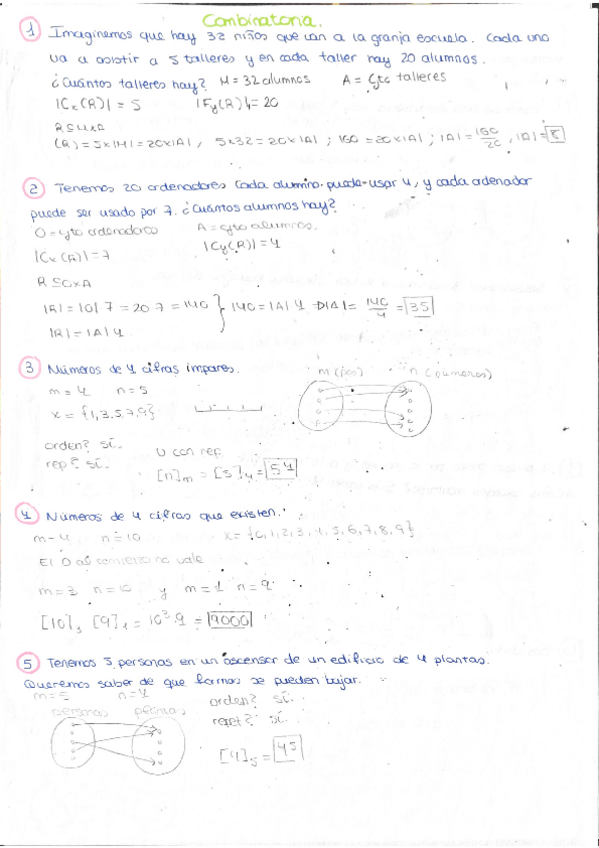 Combinatoria.
1 Imaginemos que hay 32 niños que van a la granja escuela. Cada uno
va a asistir a 5 talleres y en cada taller hay 20 alumnos.
¿Cuántos talleres hay? M = 32 alumnos A = Cjto talleres
|Cx(R)| = 5 |Fy(R)| = 20
R ⊆ M x A
(R) = 5x|M| = 20x|A| , 5x32 = 20x|A| ; 160 = 20x|A| ; |A| = 160/20 , |A| = 8
2 Tenemos 20 ordenadores Cada alumno puede usar 4, y cada ordenador
puede ser usado por 7. ¿Cuántos alumnos hay?
O = cjto ordenadores A = cjto alumnos.
|Cx(R)| = 7 |Cy(R)| = 4
R ⊆ O x A
|R| = |O| 7 = 20 7 = 140 } 140 = |A| 4 → |A| = 140/4 = 35
|R| = |A| 4
3 Números de 4 cifras impares. m (pos) n (números)
m = 4 n = 5
x = {1,3,5,7,9}
orden? sí.
rep? sí. V con rep
[n]m = [5]4 = 5^4
4 Números de 4 cifras que existen.
m = 4 n = 10 x = {0,1,2,3,4,5,6,7,8,9}
El 0 al comienzo no vale
m = 3 n = 10 y m = 1 n = 9
[10]3 [9]1 = 10³·9 = 9000
5 Tenemos 5 personas en un ascensor de un edificio de 4 plantas.
Queremos saber de que formas se pueden bajar.
m = 5 n = 4 orden? sí.
personas plantas repet? sí.
[4]5 = 4^5